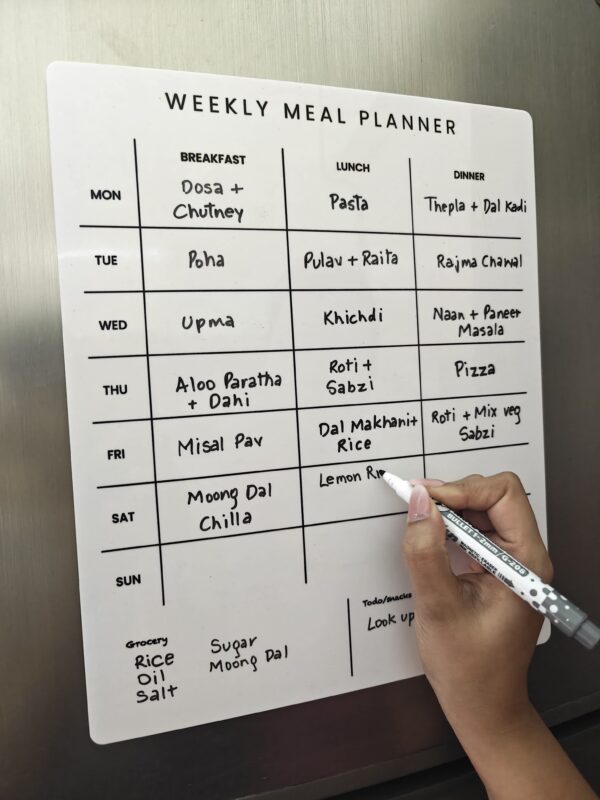 WEEKLY MEAL PLANNER
BREAKFAST LUNCH DINNER
MON
Dosa +
Chutney
Pasta
Thepla + Dal Kadi
TUE
Poha
Pulav + Raita
Rajma Chawal
WED
Upma
Khichdi
Naan + Paneer
Masala
THU
Aloo Paratha
+ Dahi
Roti +
Sabzi
Pizza
FRI
Misal Pav
Dal Makhani+
Rice
Roti + Mix veg
Sabzi
SAT
Moong Dal
Chilla
Lemon
SUN
Grocery
Rice
Oil
Salt
Sugar
Moong Dal
Todo/snacks
Look up
BULLET 1-2mm/G-208